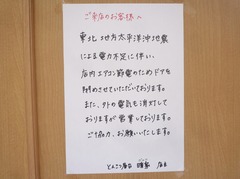 ご来店のお客様へ
東北地方太平洋沖地震
による電力不足に伴い、
店内エアコン節電のためドアを
閉めさせていただいております。
また、外の電気も消灯して
おりますが営業しております。
ご協力、お願いいたします。
とんこつ屋台 店主